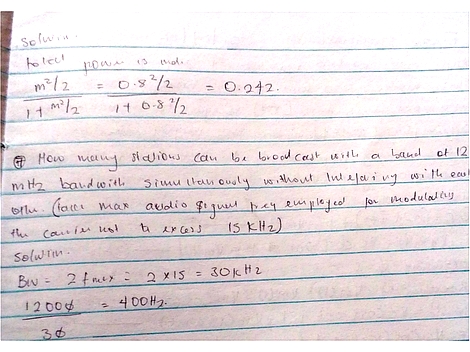 Solution.
total power is mod.
m²/2 / 1 + m²/2 = 0.8²/2 / 1 + 0.8²/2 = 0.242.
⑦ How many stations can be broadcast with a band of 12
MHz bandwith simultaneously without with each
other. (take max audio signal freq employed for modulating
the carrier not to excess 15 KHz)
Solution.
BW = 2 fmax = 2 × 15 = 30 kHz
12000 / 30 = 400Hz.